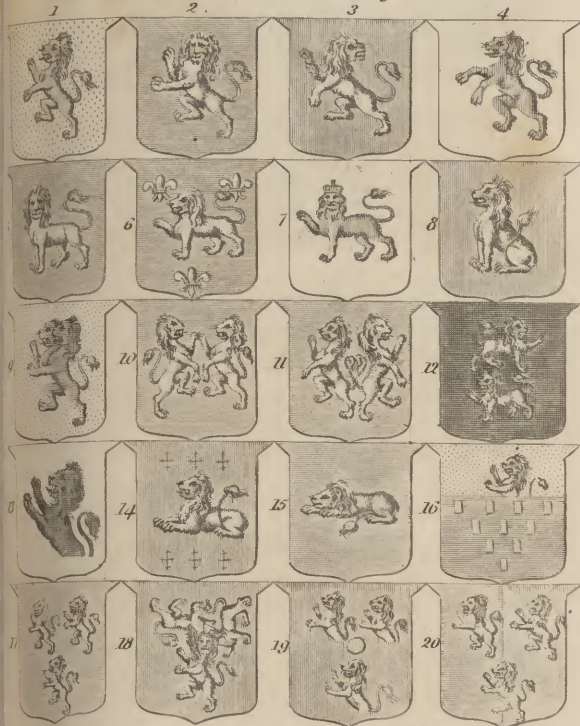 1 2. 3 4
6 7 8
9 10 11 12
13 14 15 16
17 18 19 20